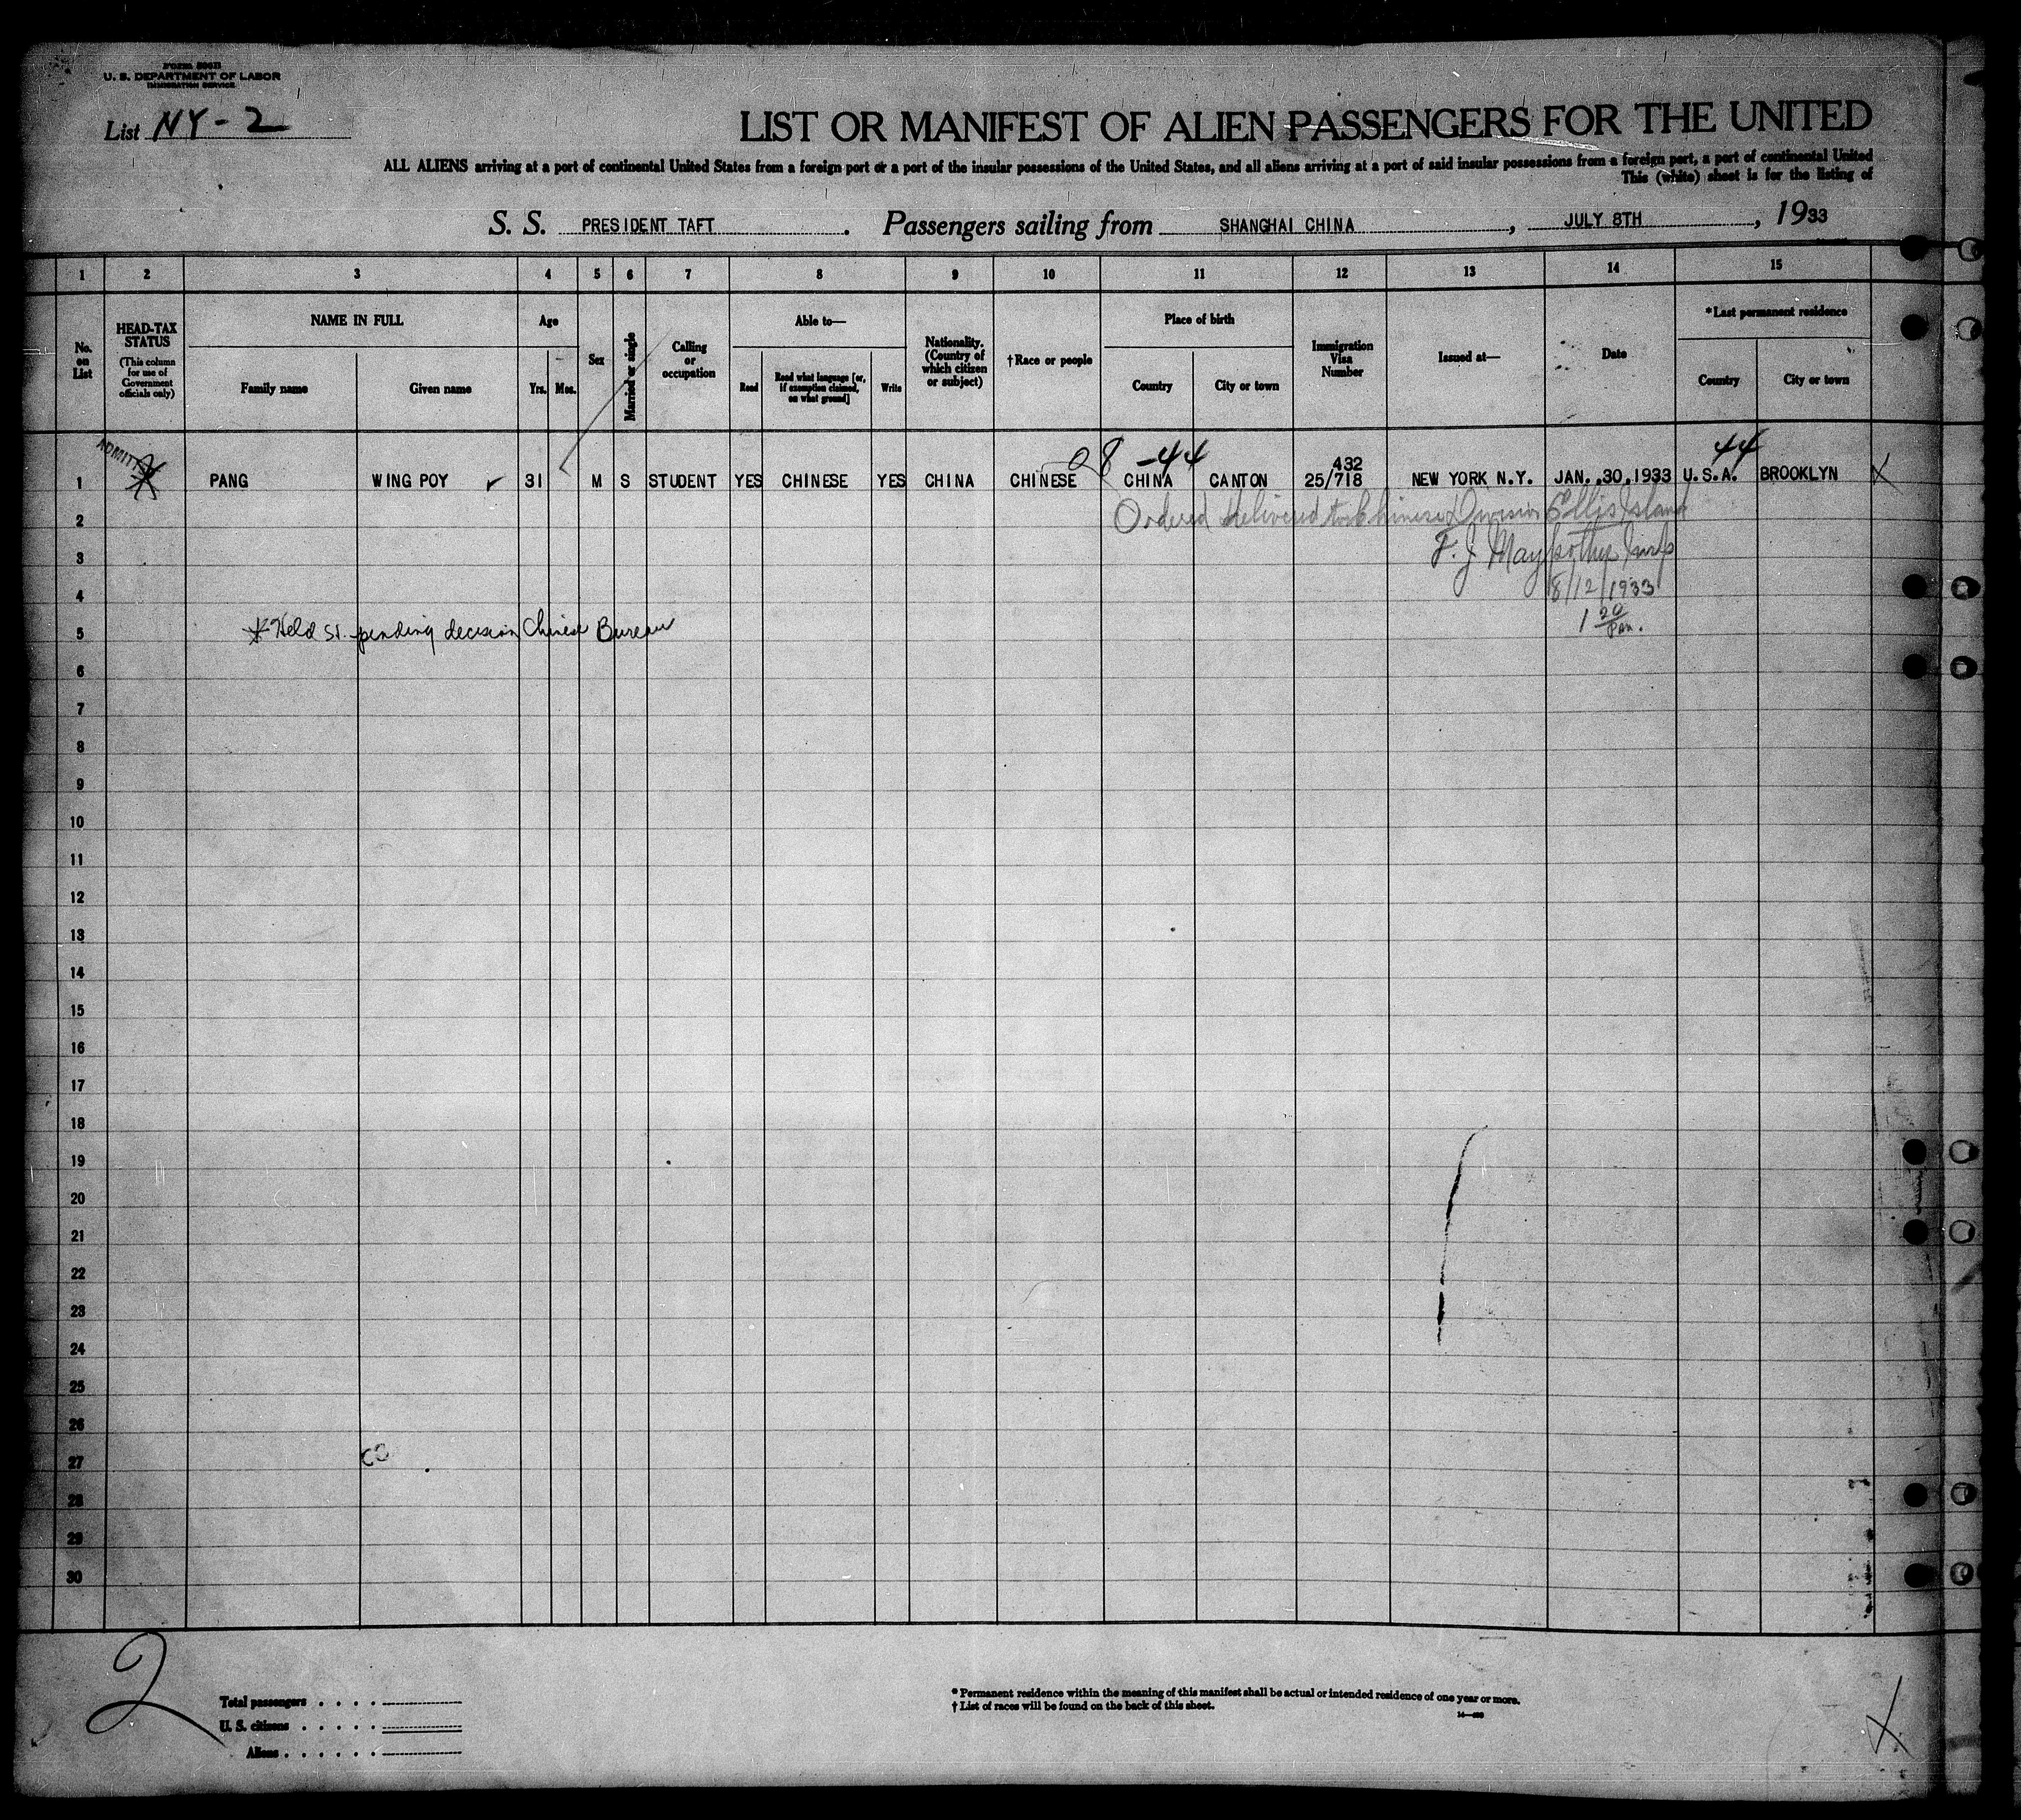 U. S. DEPARTMENT OF LABOR
IMMIGRATION SERVICE
List NY-2
LIST OR MANIFEST OF ALIEN PASSENGERS FOR THE UNITED
ALL ALIENS arriving at a port of continental United States from a foreign port or a port of the insular possessions of the United States, and all aliens arriving at a port of said insular possessions from a foreign port, a port of continental United
This (white) sheet is for the listing of
S. S. PRESIDENT TAFT . Passengers sailing from SHANGHAI CHINA , JULY 8TH , 1933
1 2 3 4 5 6 7 8 9 10 11 12 13 14 15
No. on List
HEAD-TAX STATUS
(This column for use of Government officials only)
NAME IN FULL
Family name
Given name
Age
Yrs. Mos.
Sex
Married or single
Calling or occupation
Able to—
Read
Read what language [or, if exemption claimed, on what ground]
Write
Nationality. (Country of which citizen or subject)
†Race or people
Place of birth
Country
City or town
Immigration Visa Number
Issued at—
Date
*Last permanent residence
Country
City or town
ADMITTED
08 -44
432
44
1 PANG WING POY ✓ 31 M S STUDENT YES CHINESE YES CHINA CHINESE CHINA CANTON 25/718 NEW YORK N.Y. JAN. 30, 1933 U.S.A. BROOKLYN X
2 Ordered delivered to Chinese Division Ellis Island
3 F. J. May
4 8/12/1933
5 * Held S.I. pending decision Chinese Bureau 1 20 P.m.
6
7
8
9
10
11
12
13
14
15
16
17
18
19
20
21
22
23
24
25
26
27
28
29
30
2
Total passengers
U. S. citizens
Aliens
* Permanent residence within the meaning of this manifest shall be actual or intended residence of one year or more.
† List of races will be found on the back of this sheet.
X